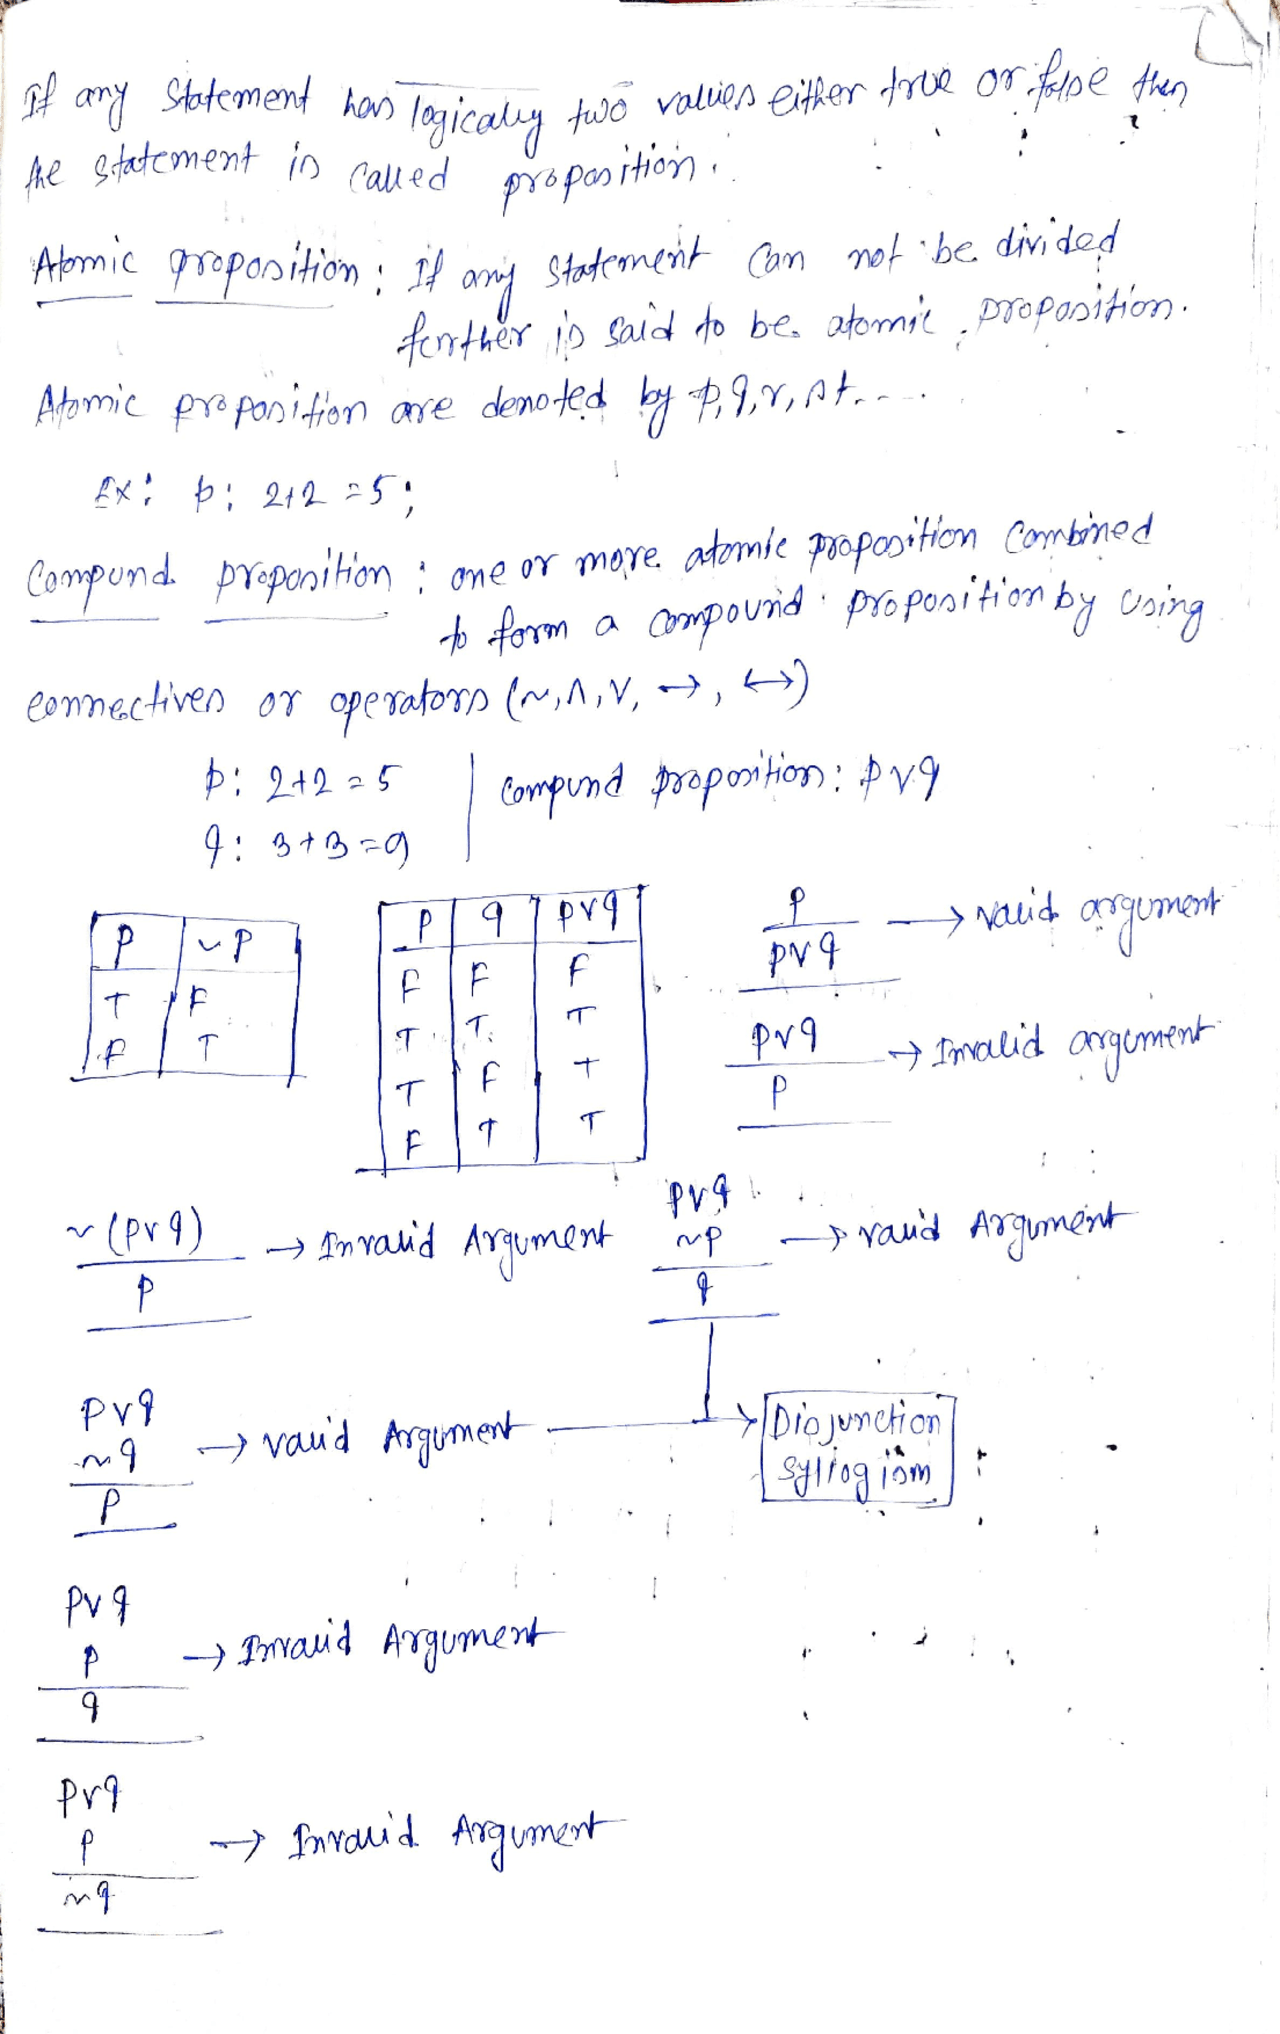 If any statement has logically two values either true or false then
the statement is called proposition.
Atomic proposition : If any statement can not be divided
further is said to be atomic proposition.
Atomic proposition are denoted by p, q, r, s t.....
Ex: p: 2+2 = 5;
Compund proposition : one or more atomic proposition combined
to form a compound proposition by using
connectives or operators (~, ∧, ∨, →, ↔)
p: 2+2 = 5 | compund proposition: p∨q
q: 3+3=9
P ~P
T F
F T
P q p∨q
F F F
T T T
T F T
F T T
P
p∨q → valid argument
p∨q
P → Invalid argument
~(p∨q)
P → Invalid Argument
p∨q
~p
q → valid Argument
p∨q
~q
P → valid Argument
Disjunction
syllogism
p∨q
p
q → Invalid Argument
p∨q
p
~q → Invalid Argument